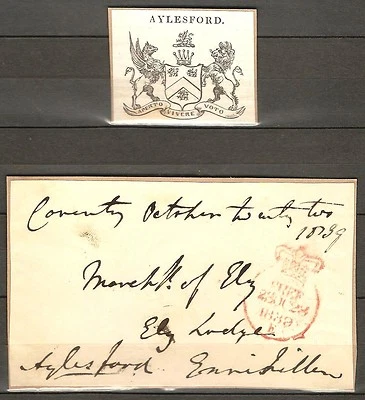 AYLESFORD.
APERTO VIVERE VOTO
Coventry October twenty two
1839
March.ss of Ely
Ely Lodge
Aylesford Enniskillen
FREE
1839